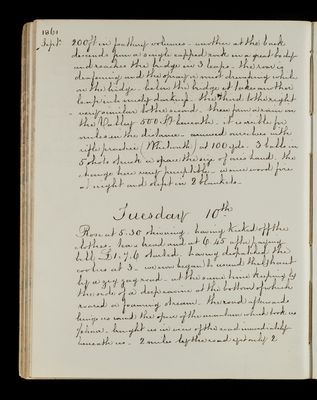 1861
Sept. 200 ft in foaming volumes - another at the back
descends from a single capped rock in a great body
and reaches the bridge in 3 leaps - the roar is
deafening and the spray a most drenching whilst
on the bridge - below the bridge it takes another
leap into misty darkness. The third to the right
- very similar to the second - these form a river in
the Valley 500 ft beneath. it is visible for
miles in the distance - amused ourselves with
rifle practice (Whitworth) at 100 yds. 3 balls in
5 shots struck a space the size of one's hand. the
change here most perceptible - wood fire
at night and slept in 2 blankets -
Tuesday 10th
Rose at 5.30 shivering - having kicked off the
clothes. had a bread and at 6.45 after paying
bill £1.7.6 started, having despatched the
coolies at 3 - we now began to ascend the Ghaut
by a zig zag road - at the same time keeping by
the side of a deep ravine at the bottom of which
roared a foaming stream - the road afterwards
brings us round the spur of the mountain which took us
brought us in view of the road immediately
beneath us - 2 miles by the road yet only 2